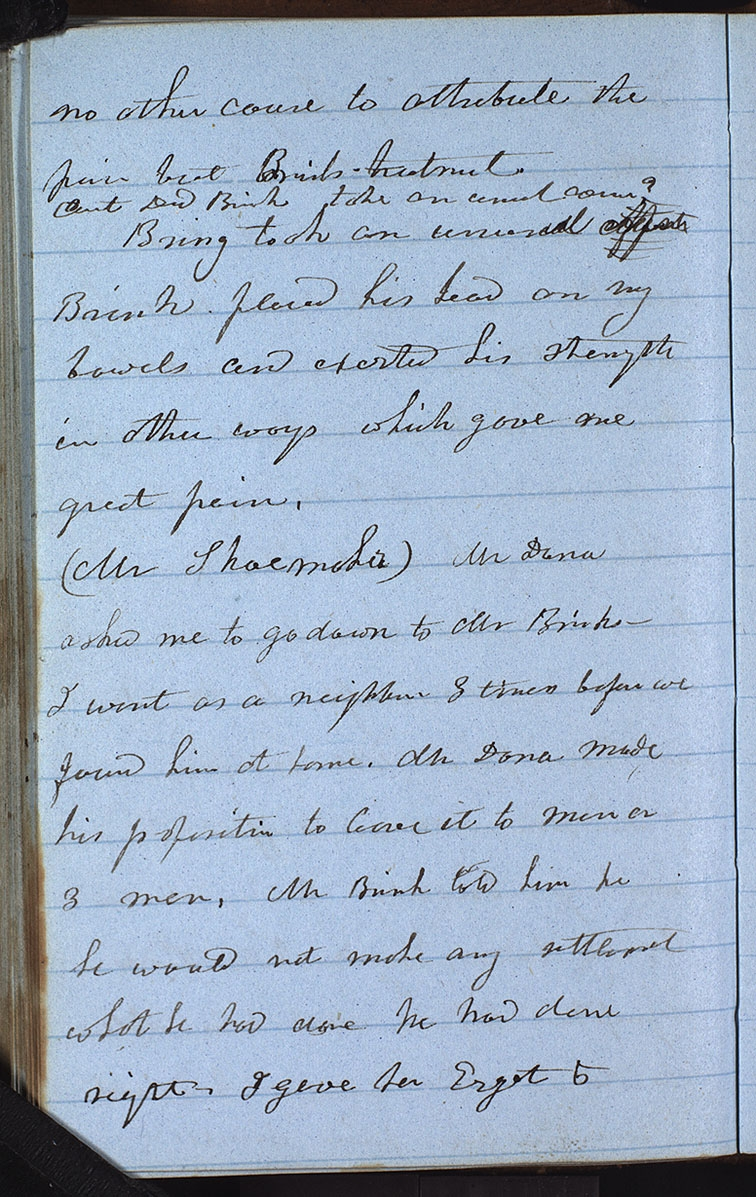 no other cause to attribute the
pain but Brinks treatment.
Did Brink take an unusual course?
Bring took an unusual
Brink placed his head on my
bowels and exerted his strength
in other ways which gave me
great pain.
(Mr Shoemaker) Mr Dana
asked me to go down to Mr Brinks –
I went as a neighbor 3 times before we
found him at home. Mr Dana made
his proposition to leave it to men or
3 men, Mr Brink told him he
he would not make any settlement
what he had done he had done
right – I gave her Ergot 5